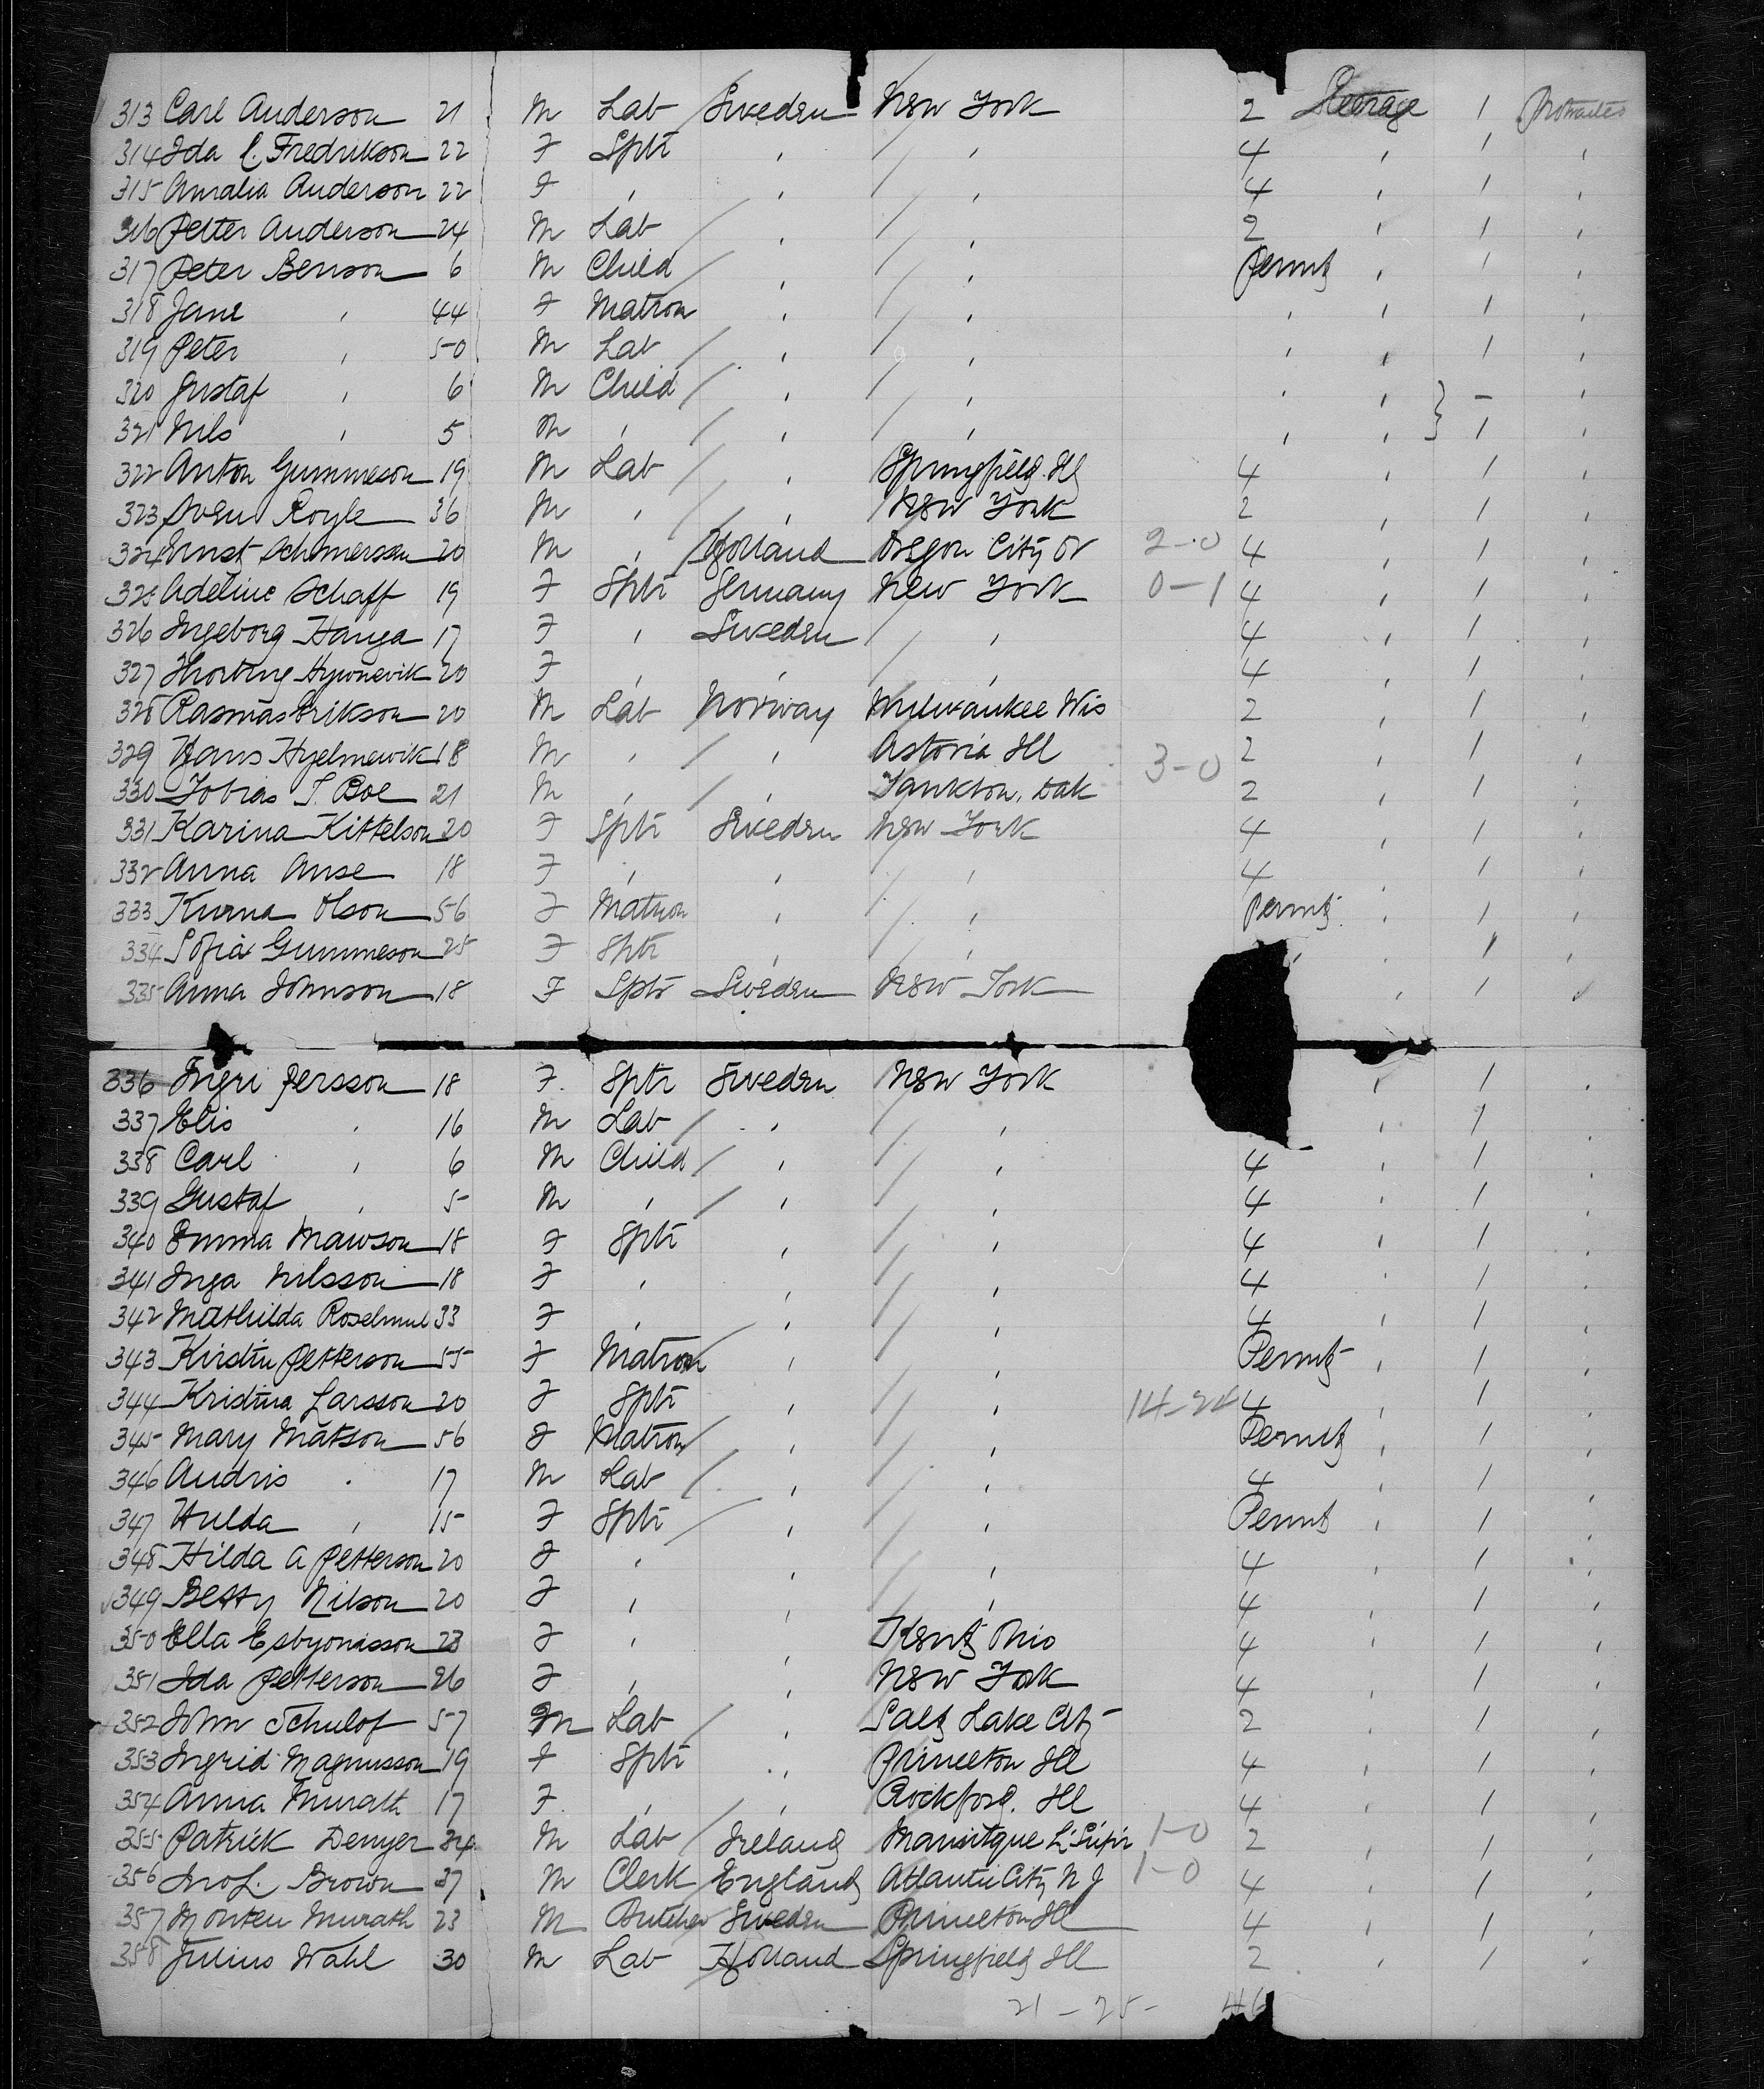 313 Carl Anderson 21 M Lab Sweden New York 2 Steerage 1
314 Ida C. Fredrikson 22 F Sptr , / , 4 , 1 ,
315 Amalia Anderson 22 F , , / , 4 , 1 ,
316 Petter Anderson 24 M Lab / , / , 2 , 1 ,
317 Peter Benson 6 M Child / , / , , 1 ,
318 Jane , 44 F Matron , / , , , 1 ,
319 Peter , 50 M Lab / , / , , , 1 ,
320 Gustaf , 6 M Child / , / , , , } - ,
321 Nils , 5 M , / , / , , , } 1 ,
322 Anton Gummeson 19 M Lab / , Springfield Ill 4 , 1 ,
323 Sven Royle 36 M , / , New York 2 , 1 ,
324 Ernst 20 M , Holland Oregon City Or 2-0 4 , 1 ,
325 Adeline Schaff 19 F Sptr Germany New York 0-1 4 , 1 ,
326 Ingeborg Hanga 17 F , Sweden / , 4 , 1 ,
327 20 F , , / , 4 , 1 ,
328 Rasmus Erikson 20 M Lab Norway Milwaukee Wis 2 , 1 ,
329 Hans Hjelmewik 18 M , / , Astoria Ill 2 , 1 ,
330 Tobias T. Boe 21 M , / , Yankton, Dak 3-0 2 , 1 ,
331 Karina Kittelson 20 F Sptr Sweden New York 4 , 1 ,
332 Anna Anse 18 F , , / , 4 , 1 ,
333 Kurna Olson 56 F Matron , / , , 1 ,
334 Sofia Gummeson 25 F Sptr , / , , 1 ,
335 Anna Johnson 18 F Sptr Sweden New York , 1 ,
336 Ingri Persson 18 F. Sptr Sweden New York , 1 ,
337 Elis , 16 M Lab / , / , , 1 ,
338 Carl , 6 M Child / , / , 4 , 1 ,
339 Gustaf , 5 M , / , / , 4 , 1 ,
340 Emma Mawson 18 F Sptr , / , 4 , 1 ,
341 Inga Nilsson 18 F , , / , 4 , 1 ,
342 Mathilda 33 F , , / , 4 , 1 ,
343 Kirstin Petterson 55 F Matron , / , , 1 ,
344 Kristina Larsson 20 F Sptr , / , 14-24 4 , 1 ,
345 Mary Matson 56 F Matron / , / , , 1 ,
346 Andris , 17 M Lab / , / , 4 , 1 ,
347 Hulda , 15 F Sptr / , / , , 1 ,
348 Hilda A Petterson 20 F , , / , 4 , 1 ,
349 Betty Nilson 20 F , , / , 4 , 1 ,
350 Ella 23 F , , Kent Ohio 4 , 1 ,
351 Ida Petterson 26 F , , New York 4 , 1 ,
352 John Schulof 57 M Lab / , Salt Lake City 2 , 1 ,
353 Ingrid Magnusson 19 F Sptr , Princeton Ill 4 , 1 ,
354 Anna Murath 17 F , / , Rockford. Ill 4 , 1 ,
355 Patrick Denyer 34 M Lab Ireland 1-0 2 , 1 ,
356 Brown 37 M Clerk England Atlantic City N J 1-0 4 , 1 ,
357 Murath 23 M Butcher Sweden Princeton Ill 4 , 1 ,
358 Julius Wahl 30 M Lab Holland Springfield Ill 2 , 1 ,
21-25- 46